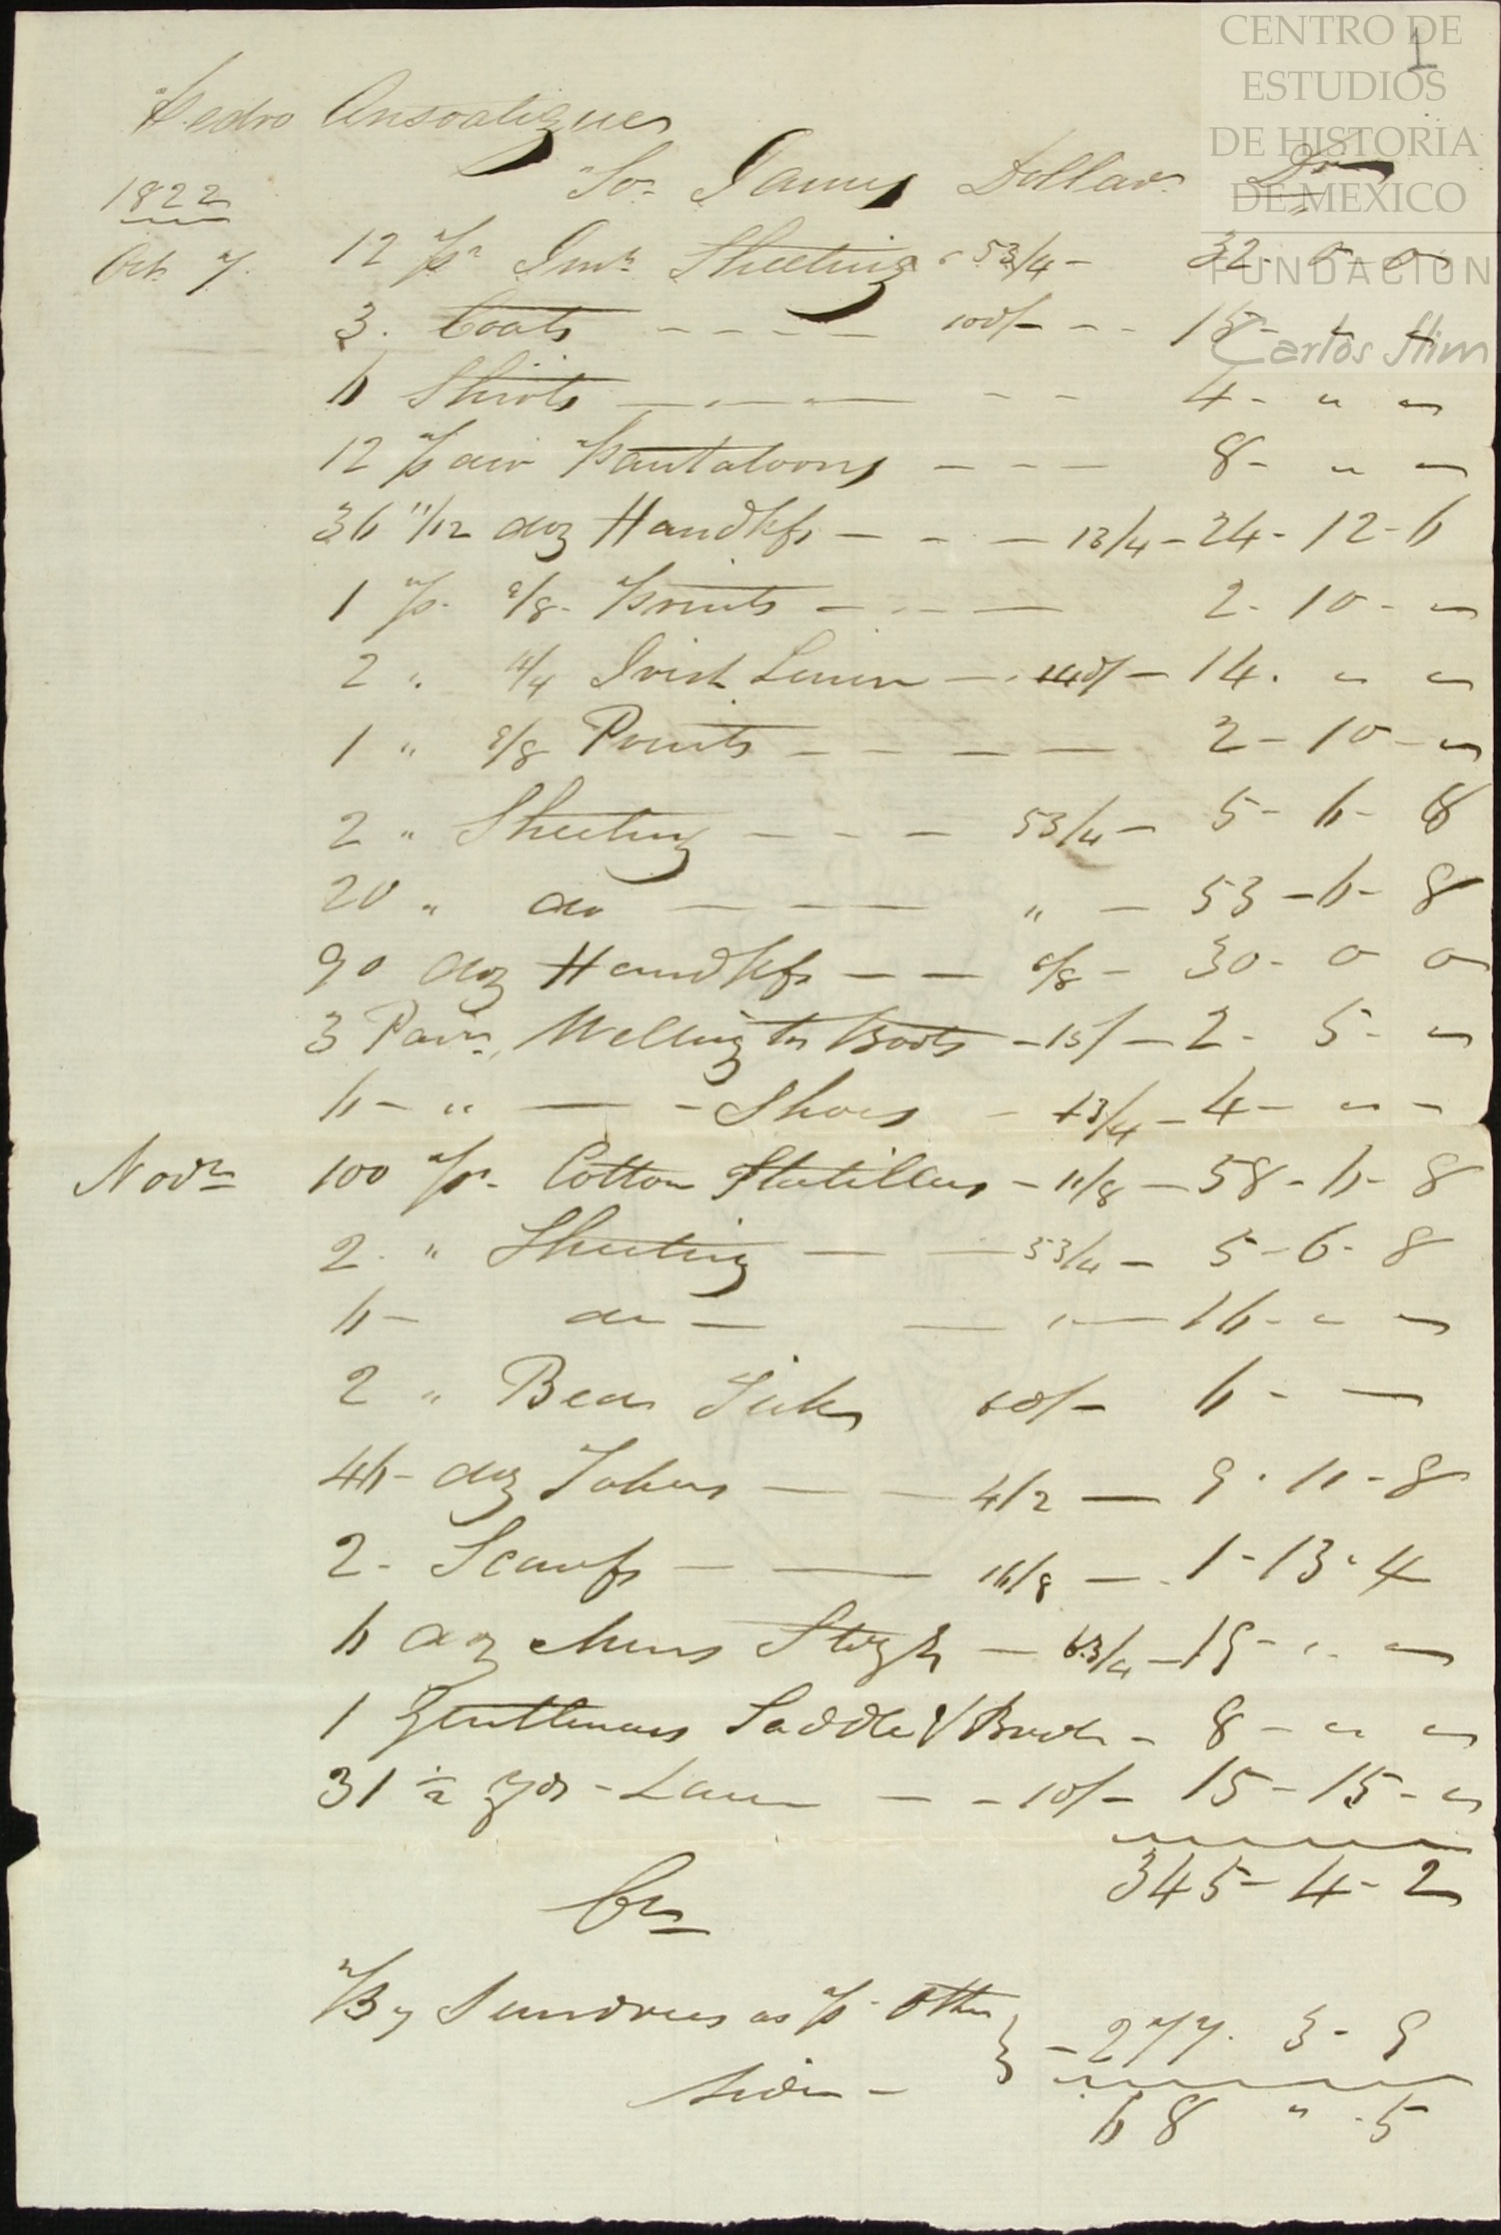 CENTRO DE
ESTUDIOS
DE HISTORIA
DE MEXICO
FUNDACIÓN
Carlos Slim
1
Pedro Ansoategues
To James Dollar Dr
1822
Oct 7. 12 ps Imn Sheeting 53/4 - 32 - 0 - 0
3. Coats - - - - 100/- - - 15 - " "
6 Shirts - - - - - 4 - " "
12 pair Pantaloons - - - 8 - " "
36 11/12 doz Handkfs - - - 13/4 - 24 - 12 - 6
1 ps. 9/8 Prints - - - 2 - 10 - "
2 " 4/4 Irish Linen - 140/- - 14. " "
1 " 9/8 Prints - - - - 2 - 10 - "
2 " Sheeting - - - 53/4 - 5 - 6 - 8
20 " do - - - " - 53 - 6 - 8
90 doz Handkfs - - 6/8 - 30 - 0 0
3 Pairs Wellington Boots - 15/ - 2 - 5 - "
6 - " - - Shoes - 13/4 - 4 - " "
Novr 100 ps. Cotton Platillas - 11/8 - 58 - 6 - 8
2 " Sheeting - - 53/4 - 5 - 6 - 8
6 - do - - " - 16 - " "
2 " Bed Ticks 60/- 6 - -
46 - doz - - 4/2 - 9 - 11 - 8
2 - Scarfs - - 16/8 - 1 - 13 - 4
6 doz Mens Stogs - 63/4 - 19 - " "
1 Gentlemans Saddle & Bridle - 8 - " "
31 1/2 yds - Lawn - - 10/- 15 - 15 - "
345 - 4 - 2
Cr
By Sundries as pr Other } - 277. 3 - 9
side -
68 " 5